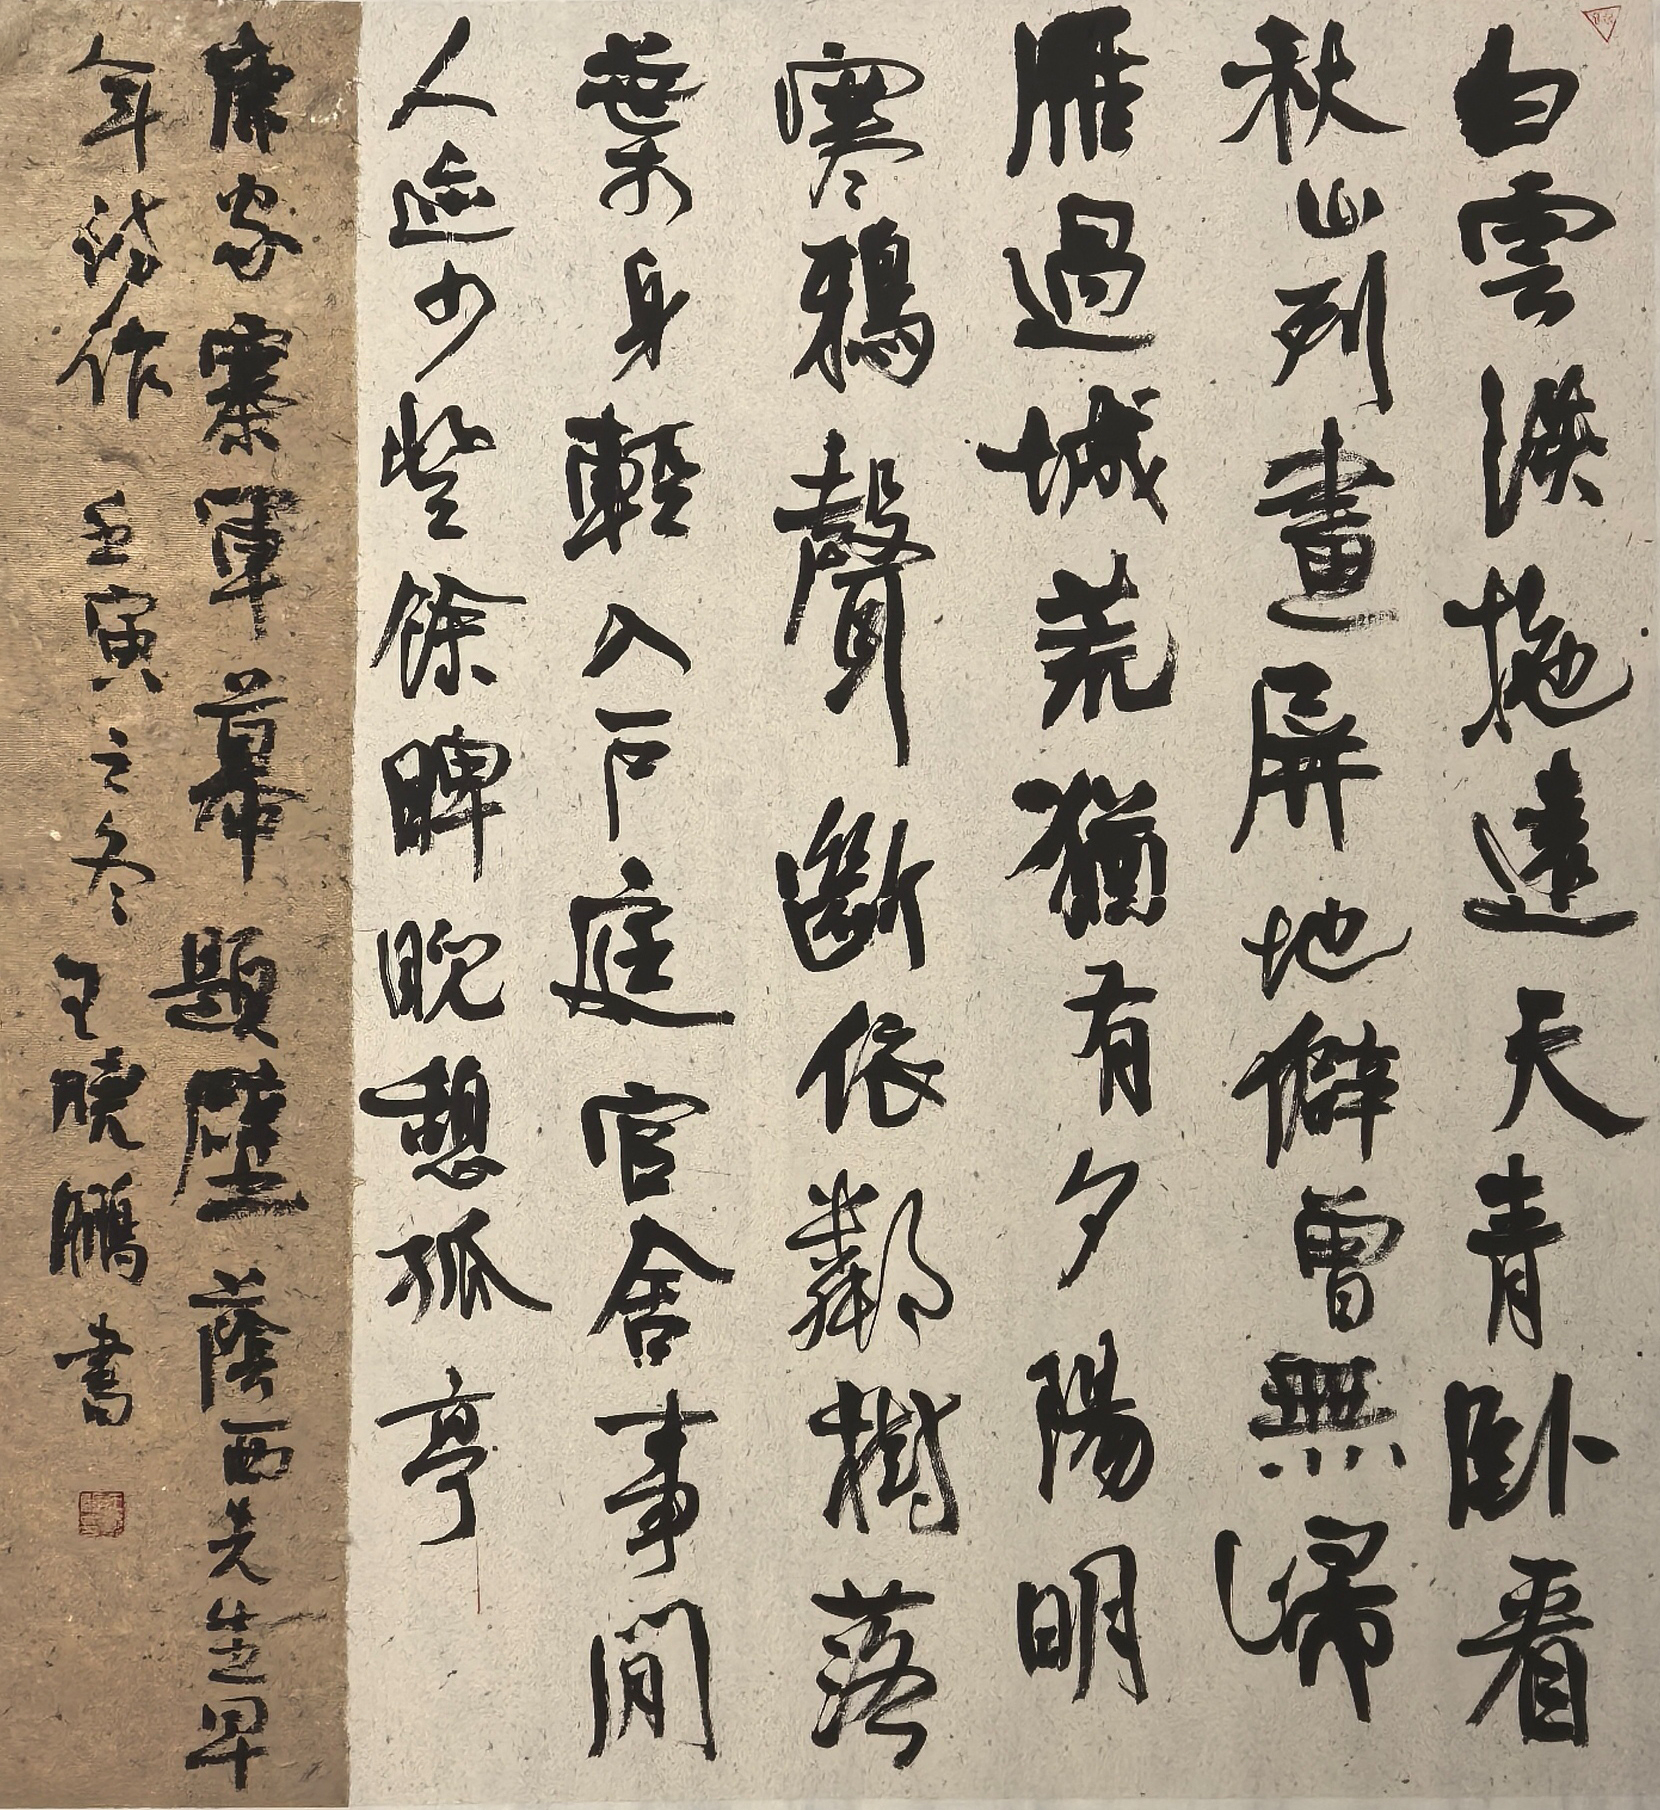 白雲淡拖遠天青卧看
秋山列畫屏地僻曾無歸
雁過城荒猶有夕陽明
寒鴉聲斷依鄰樹落
葉身輕入戶庭官舍事閒
人迹少登餘睥睨憩孤亭
唐家寨軍幕題壁蔭西先生早
年詩作 壬寅之冬 王曉鵬書